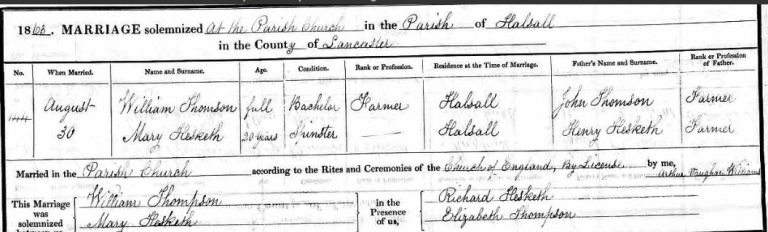 1863. MARRIAGE solemnized at the Parish Church in the Parish of Halsall
in the County of Lancaster
No. When Married. Name and Surname. Age. Condition. Rank or Profession. Residence at the Time of Marriage. Father's Name and Surname. Rank or Profession of Father.
144 August William Thomson full Bachelor Farmer Halsall John Thomson Farmer
30 Mary Hesketh 20 years Spinster — Halsall Henry Hesketh Farmer
Married in the Parish Church according to the Rites and Ceremonies of the Church of England, By License by me,
Arthur Vaughan Williams
This Marriage was solemnized between us, William Thompson in the Presence of us, Richard Hesketh
Mary Hesketh Elizabeth Thompson